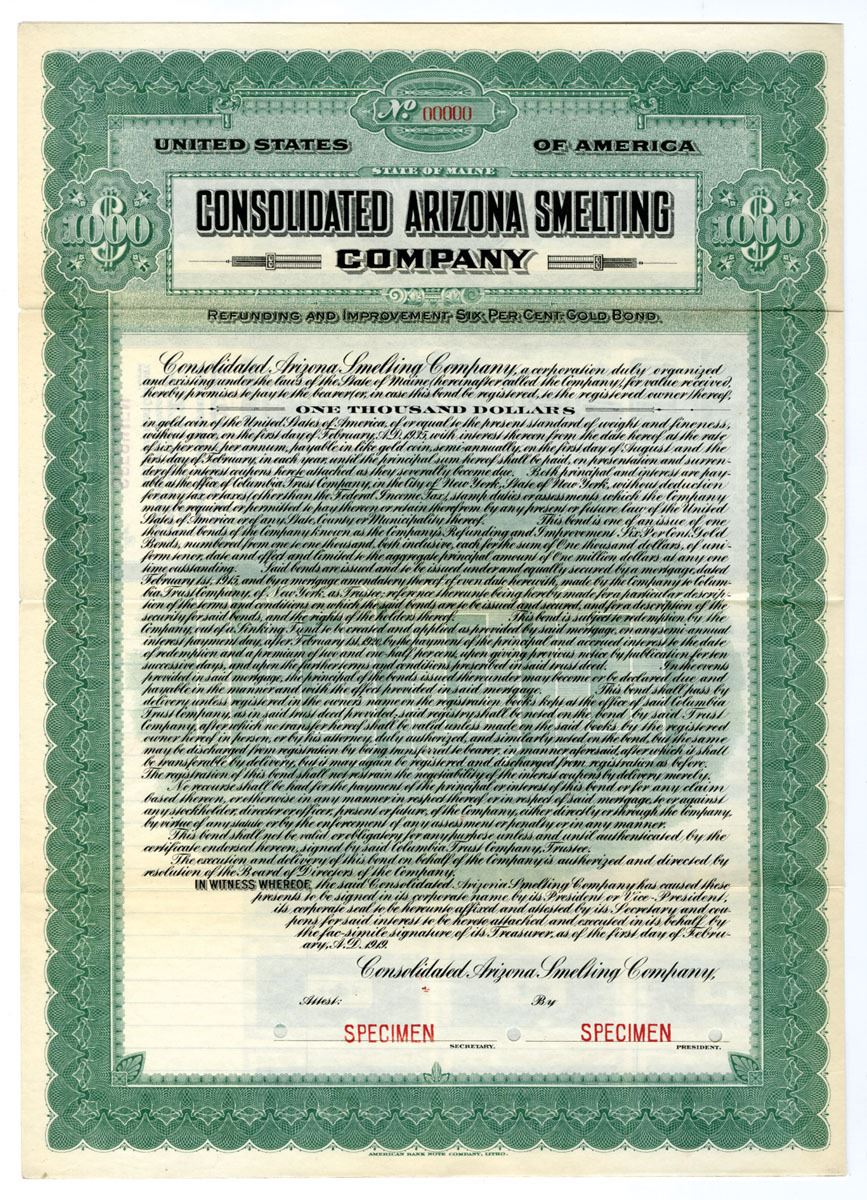 No 00000
UNITED STATES OF AMERICA
STATE OF MAINE
$1000 CONSOLIDATED ARIZONA SMELTING $1000
COMPANY
REFUNDING AND IMPROVEMENT SIX PER CENT. GOLD BOND.
Consolidated Arizona Smelting Company, a corporation duly organized
and existing under the laws of the State of Maine (hereinafter called the Company), for value received,
hereby promises to pay to the bearer, or, in case this bond be registered, to the registered owner hereof,
ONE THOUSAND DOLLARS
in gold coin of the United States of America, of or equal to the present standard of weight and fineness,
without grace, on the first day of February, A.D. 1935, with interest thereon from the date hereof at the rate
of six per cent. per annum, payable in like gold coin, semi-annually, on the first day of August and the
first day of February, in each year, until the principal sum hereof shall be paid, on presentation and surren-
der of the interest coupons hereto attached as they severally become due. Both principal and interest are pay-
able at the office of Columbia Trust Company, in the City of New York, State of New York, without deduction
for any tax or taxes (other than the Federal Income Tax), stamp duties or assessments which the Company
may be required or permitted to pay thereon or retain therefrom by any present or future law of the United
States of America or of any State, County or Municipality thereof. This bond is one of an issue of one
thousand bonds of the Company known as the Company's Refunding and Improvement Six Per Cent. Gold
Bonds, numbered from one to one thousand, both inclusive, each for the sum of One thousand dollars, of uni-
form tenor, date and effect and limited to the aggregate principal amount of One million dollars at any one
time outstanding. Said bonds are issued and to be issued under and equally secured by a mortgage, dated
February 1st, 1915, and by a mortgage amendatory thereof of even date herewith, made by the Company to Colum-
bia Trust Company, of New York, as Trustee; reference thereunto being hereby made for a particular descrip-
tion of the terms and conditions on which the said bonds are to be issued and secured, and for a description of the
security for said bonds, and the rights of the holders thereof. This bond is subject to redemption by the
Company, out of a Sinking Fund to be created and applied as provided by said mortgage, on any semi-annual
interest payment day, after February 1st, 1920, by the payment of the principal and accrued interest to the date
of redemption and a premium of two and one-half per cent, upon giving previous notice by publication, for ten
successive days, and upon the further terms and conditions prescribed in said trust deed. In the events
provided in said mortgage, the principal of the bonds issued thereunder may become or be declared due and
payable in the manner and with the effect provided in said mortgage. This bond shall pass by
delivery unless registered in the owner's name on the registration books kept at the office of said Columbia
Trust Company, as in said trust deed provided, said registry shall be noted on the bond by said Trust
Company, after which no transfer hereof shall be valid unless made on the said books by the registered
owner hereof in person, or by his attorney, duly authorized, and similarly noted on the bond, but the same
may be discharged from registration by being transferred to bearer, in manner aforesaid, after which it shall
be transferable by delivery, but it may again be registered and discharged from registration as before.
The registration of this bond shall not restrain the negotiability of the interest coupons by delivery merely.
No recourse shall be had for the payment of the principal or interest of this bond or for any claim
based thereon, or otherwise in any manner in respect thereof or in respect of said mortgage, to or against
any stockholder, director or officer, present or future, of the Company, either directly or through the Company,
by virtue of any statute or by the enforcement of any assessment or penalty or in any manner.
This bond shall not be valid or obligatory for any purpose unless and until authenticated by the
certificate endorsed hereon, signed by said Columbia Trust Company, Trustee.
The execution and delivery of this bond on behalf of the Company is authorized and directed by
resolution of the Board of Directors of the Company.
IN WITNESS WHEREOF, the said Consolidated Arizona Smelting Company has caused these
presents to be signed in its corporate name by its President or Vice-President,
its corporate seal to be hereunto affixed and attested by its Secretary and cou-
pons for said interest to be hereto attached and executed in its behalf, by
the fac-simile signature of its Treasurer, as of the first day of Febru-
ary, A.D. 1919.
Consolidated Arizona Smelting Company,
Attest: By
SPECIMEN SPECIMEN
SECRETARY. PRESIDENT.
AMERICAN BANK NOTE COMPANY, LITHO.